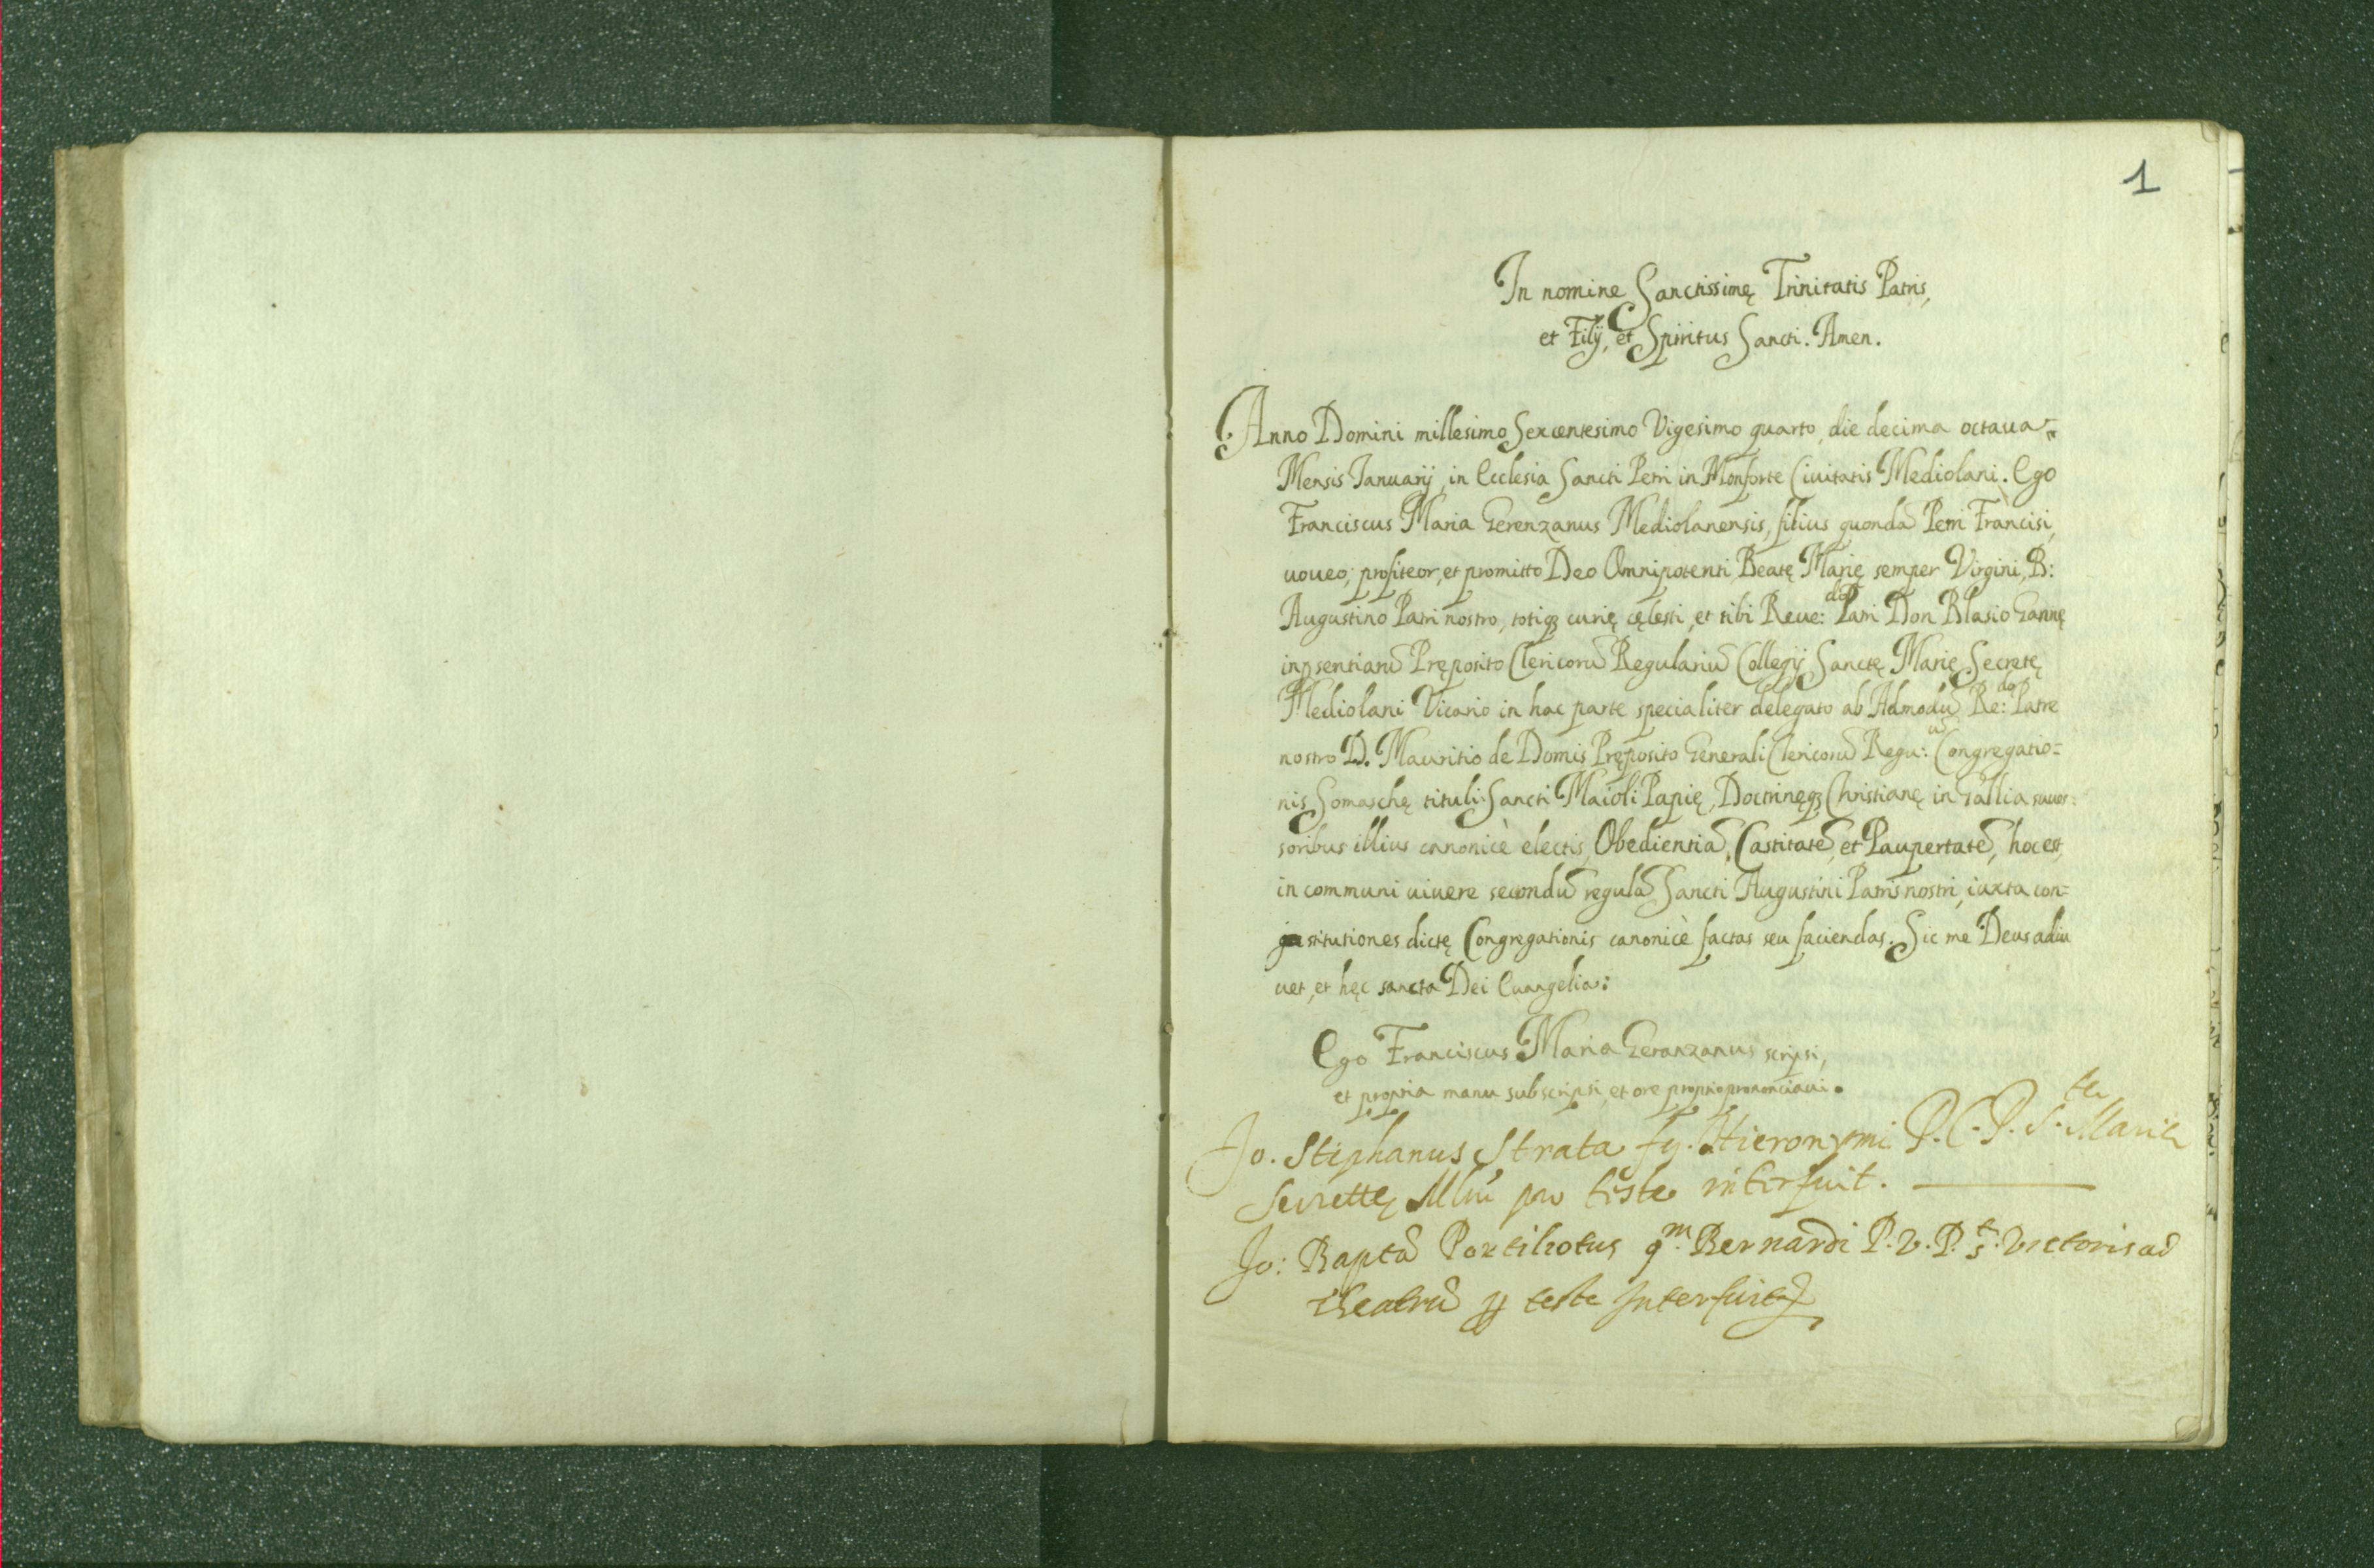 1
In nomine Sanctissimę Trinitatis Patris,
et Filij, et Spiritus Sancti. Amen.
Anno Domini millesimo Sexcentesimo Vigesimo quarto, die decima octaua
Mensis Ianuarij, in Ecclesia Sancti Petri in Monforte Ciuitatis Mediolani. Ego
Franciscus Maria Gerenzanus Mediolanensis, filius quondā Petri Francisi,
uoueo, profiteor, et promitto Deo Omnipotenti, Beatę Marię semper Virgini, B:
Augustino Patri nostro, totiqȝ curię cęlesti, et tibi Reue:do Patri Don Blasio Gannę
inpsentiarū Pręposito Clericorū Regulariū Collegij Sanctę Marię Secretę
Mediolani Vicario in hac parte specialiter delegato ab Admodū Re:do Patre
nostro D. Mauritio de Domis Pręposito Generali Clericorū Regu:ū Congregatio=
nis Somaschę tituli Sancti Maioli Papię, Doctrinęqȝ Christianę in Gallia succes=
soribus illius canonicè electis, Obedientiā, Castitatē, et Paupertatē, hoc est,
in communi uiuere secondū regulā Sancti Augustini Patris nostri, iuxta con=
stitutiones dictę Congregationis canonicè factas seu faciendas. Sic me Deus adiu
uet, et hęc sancta Dei Euangelia:
Ego Franciscus Maria Geranzanus scripsi,
et propria manu subscripsi, et ore proprio prononciaui.
Jo. Stephanus Strata fq. Hieronymi P.C.P. S.tę Marię
Secrettę Mlni pro teste interfuit.
Jo: Baptā qm. Bernardi P.V.P. S.t Victoris ad
theatrū ꝑ teste Interfuit